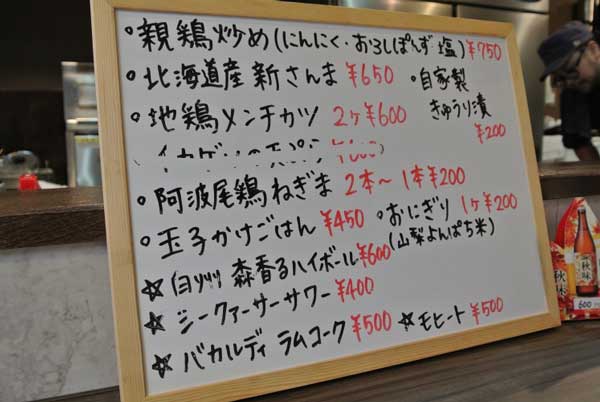 ・親鶏炒め(にんにく・おろしぽんず 塩) ¥750
・北海道産 新さんま ¥650
・自家製
きゅうり漬
¥200
・地鶏メンチカツ 2ヶ¥600
・阿波尾鶏ねぎま 2本〜 1本¥200
・玉子かけごはん ¥450
・おにぎり 1ヶ¥200
(山梨よんぱち米)
☆ 森香るハイボール ¥600
☆ シークァーサーサワー ¥400
☆ バカルディ ラムコーク ¥500
☆ モヒート ¥500
秋味
秋味
600